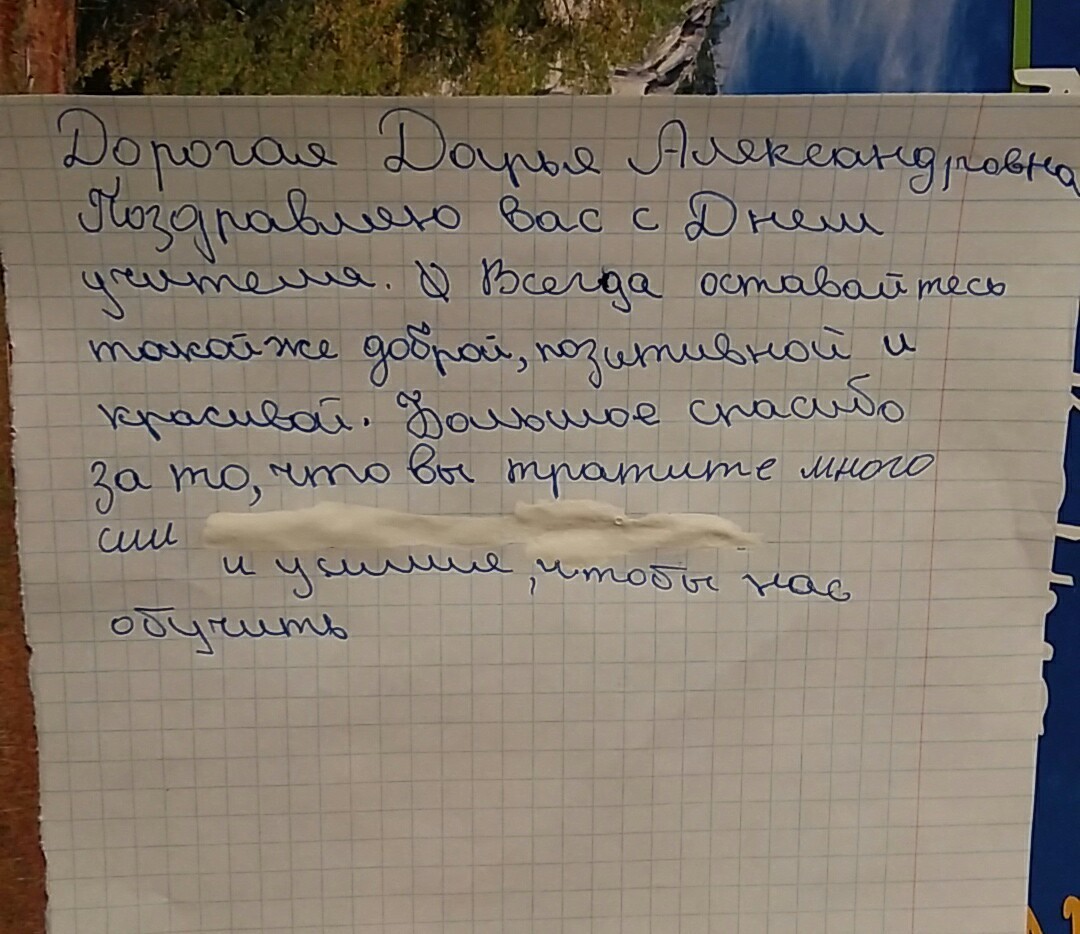 Дорогая Дарья Александровна
Поздравляю вас с Днем
учителя. Всегда оставайтесь
такойже доброй, позитивной и
красивой. Большое спасибо
за то, что вы тратите много
сил
и усилия, чтобы нас
обучить